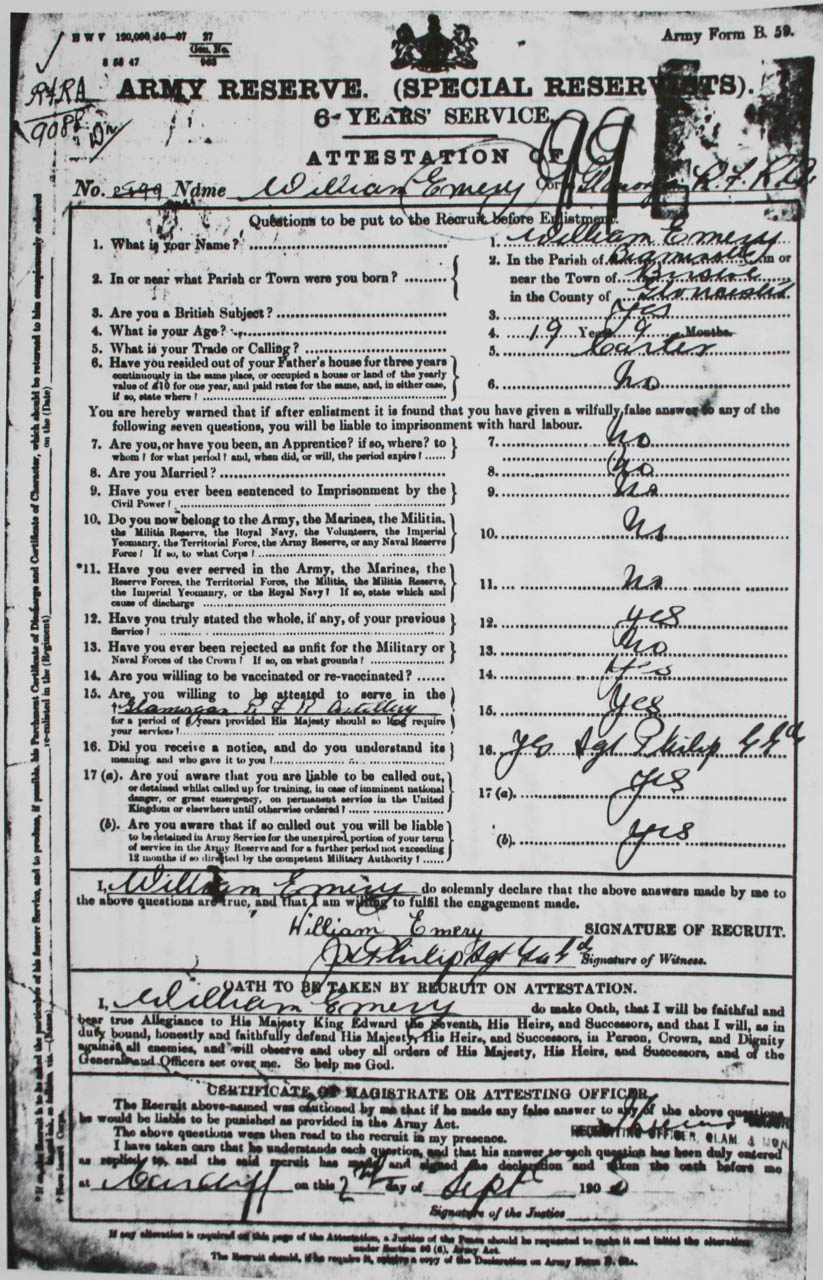 H W V 120,000 10—07 27
Gen. No.
S 58 47 963
Army Form B. 59.
ARMY RESERVE. (SPECIAL RESERVISTS).
6 YEARS' SERVICE.
R&RA
ATTESTATION OF
No. Name William Emery Corps Glamorgan R. F. R. A
Questions to be put to the Recruit before Enlistment.
1. What is your Name? 1. William Emery
2. In or near what Parish or Town were you born? 2. In the Parish of in or
near the Town of
in the County of
3. Are you a British Subject? 3. Yes
4. What is your Age? 4. 19 Years 9 Months.
5. What is your Trade or Calling? 5. Carter
6. Have you resided out of your Father's house for three years
continuously in the same place, or occupied a house or land of the yearly
value of £10 for one year, and paid rates for the same, and, in either case,
if so, state where? 6. No
You are hereby warned that if after enlistment it is found that you have given a wilfully false answer to any of the
following seven questions, you will be liable to imprisonment with hard labour.
7. Are you, or have you been, an Apprentice? if so, where? to
whom? for what period? and, when did, or will, the period expire? 7. No
8. Are you Married? 8. No
9. Have you ever been sentenced to Imprisonment by the
Civil Power? 9. No
10. Do you now belong to the Army, the Marines, the Militia,
the Militia Reserve, the Royal Navy, the Volunteers, the Imperial
Yeomanry, the Territorial Force, the Army Reserve, or any Naval Reserve
Force? If so, to what Corps? 10. No
*11. Have you ever served in the Army, the Marines, the
Reserve Forces, the Territorial Force, the Militia, the Militia Reserve,
the Imperial Yeomanry, or the Royal Navy? If so, state which and
cause of discharge 11. No
12. Have you truly stated the whole, if any, of your previous
Service? 12. yes
13. Have you ever been rejected as unfit for the Military or
Naval Forces of the Crown? If so, on what grounds? 13. No
14. Are you willing to be vaccinated or re-vaccinated? 14. Yes
15. Are you willing to be attested to serve in the
† Glamorgan R F R Artillery
for a period of 6 years provided His Majesty should so long require
your services? 15. Yes
16. Did you receive a notice, and do you understand its
meaning, and who gave it to you? 16. Yes Sgt Philip
17 (a). Are you aware that you are liable to be called out,
or detained whilst called up for training, in case of imminent national
danger, or great emergency, on permanent service in the United
Kingdom or elsewhere until otherwise ordered? 17 (a). yes
(b). Are you aware that if so called out you will be liable
to be detained in Army Service for the unexpired portion of your term
of service in the Army Reserve and for a further period not exceeding
12 months if so directed by the competent Military Authority? (b). yes
I, William Emery do solemnly declare that the above answers made by me to
the above questions are true, and that I am willing to fulfil the engagement made.
William Emery SIGNATURE OF RECRUIT.
Philip Sgt Signature of Witness.
OATH TO BE TAKEN BY RECRUIT ON ATTESTATION.
I, William Emery do make Oath, that I will be faithful and
bear true Allegiance to His Majesty King Edward the Seventh, His Heirs, and Successors, and that I will, as in
duty bound, honestly and faithfully defend His Majesty, His Heirs, and Successors, in Person, Crown, and Dignity
against all enemies, and will observe and obey all orders of His Majesty, His Heirs, and Successors, and of the
Generals and Officers set over me. So help me God.
CERTIFICATE OF MAGISTRATE OR ATTESTING OFFICER.
The Recruit above-named was cautioned by me that if he made any false answer to any of the above questions
he would be liable to be punished as provided in the Army Act.
The above questions were then read to the recruit in my presence.
RECRUITING OFFICER, GLAM. & MON
I have taken care that he understands each question, and that his answer to each question has been duly entered
as replied to, and the said recruit has made and signed the declaration and taken the oath before me
at Cardiff on this 2nd day of Sept 190
Signature of the Justice
If any alteration is required on this page of the Attestation, a Justice of the Peace should be requested to make it and initial the alteration
under Section 80 (6), Army Act.
The Recruit should, if he require it, receive a copy of the Declaration on Army Form